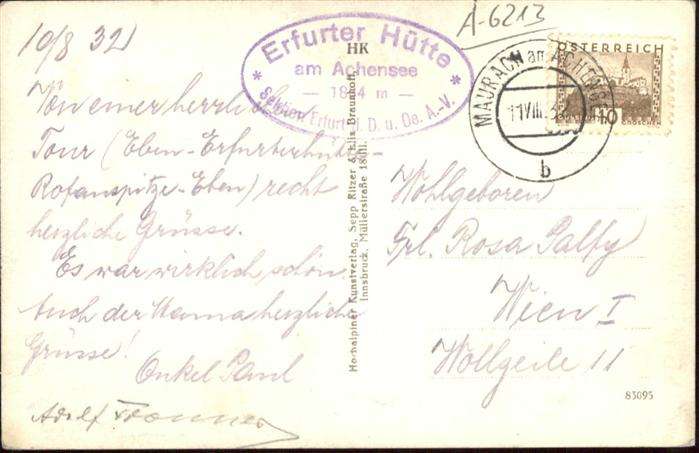 10/8 32
Von einer herrlichen
Tour (Eben-Erfurterhütte-
Rofanspitze-Eben) recht
herzliche Grüsse.
Es war wirklich schön.
Auch der Mama herzliche
Grüsse!
Onkel Paul
Adolf
Erfurter Hütte
am Achensee
— 1834 m —
* Sektion Erfurt d. D. u. Oe. A.-V. *
HK
Hochalpiner Kunstverlag, Sepp Ritzer & Elis Braunhoff,
Innsbruck, Müllerstraße 18/III.
A-6213
MAURACH am ACHENSEE
11 VIII 32
b
ÖSTERREICH
10
Wohlgeboren
Frl. Rosa Palfy
Wien I
Wollzeile 11
83095